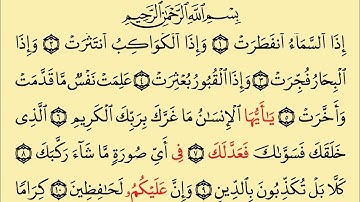 بِسْمِ ٱللَّهِ ٱلرَّحْمَٰنِ ٱلرَّحِيمِ
إِذَا ٱلسَّمَآءُ ٱنفَطَرَتْ ١ وَإِذَا ٱلْكَوَاكِبُ ٱنتَثَرَتْ ٢ وَإِذَا
ٱلْبِحَارُ فُجِّرَتْ ٣ وَإِذَا ٱلْقُبُورُ بُعْثِرَتْ ٤ عَلِمَتْ نَفْسٌ مَّا قَدَّمَتْ
وَأَخَّرَتْ ٥ يَٰٓأَيُّهَا ٱلْإِنسَٰنُ مَا غَرَّكَ بِرَبِّكَ ٱلْكَرِيمِ ٦ ٱلَّذِى
خَلَقَكَ فَسَوَّىٰكَ فَعَدَّلَكَ ٧ فِىٓ أَىِّ صُورَةٍ مَّا شَآءَ رَكَّبَكَ ٨
كَلَّا بَلْ تُكَذِّبُونَ بِٱلدِّينِ ٩ وَإِنَّ عَلَيْكُمُۥ لَحَٰفِظِينَ ١٠ كِرَامًا